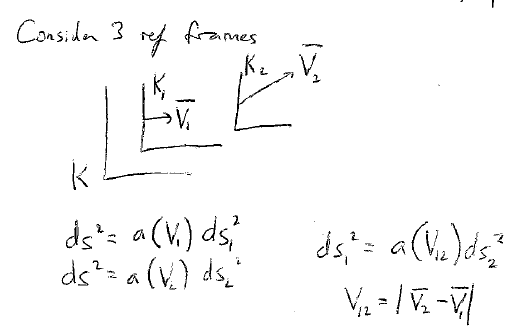 Consider 3 ref frames
K₁ V̄₁
K₂ V̄₂
K
ds² = a(V₁) ds₁²
ds² = a(V₂) ds₂²
ds₁² = a(V₁₂) ds₂²
V₁₂ = |V̄₂ - V̄₁|